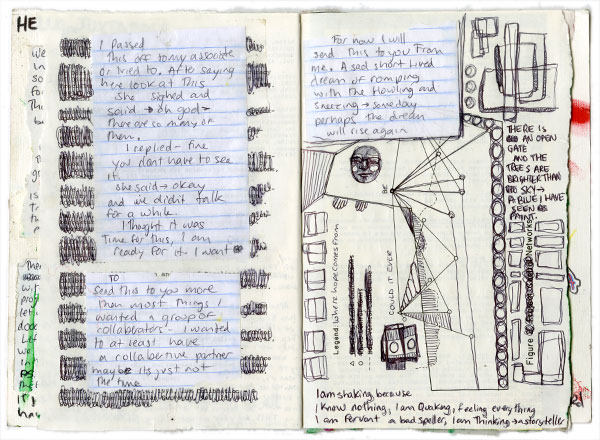 HE
I Passed
this off to my associate
or tried to. After saying
here look at this
she sighed and
said → oh god →
there are so many of
them.
I replied - fine
you dont have to see
it.
she said → okay
and we didit talk
for a while.
I thought it was
Time for this, I am
ready for it. I want
TO
Send this to you more
then most things I
wanted a group of
collaberators - I wanted
to at least have
a collabertive partner
maybe its just not
the time
For now I will
send This to you From
me. A sed short lived
dream of romping
with the Howling and
sneezing → someday
perhaps the dream
will rise again
THERE IS
AN OPEN
GATE
AND THE
TREES ARE
BRIGHTER THAN
SKY →
A BLUE I HAVE
SEEN AS
PAINT.
BE
COULD IT EVER
Legend: Where hope comes from
Figure
Networks
I am shaking, because
I know nothing, I am Quaking, feeling everything
I am fervant a bad speller, I am Thinking → a storyteller